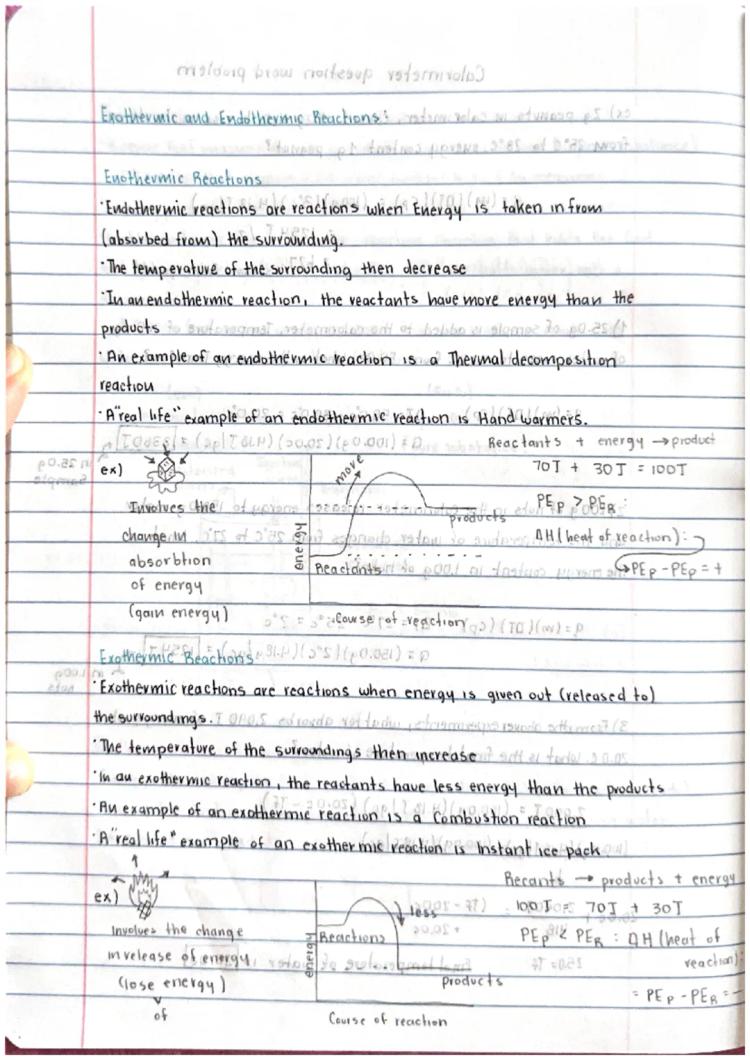 Exothermic and Endothermic Reactions:
Enothermic Reactions
·Endothermic reactions are reactions when Energy is taken in from
(absorbed from) the surrounding.
·The temperature of the surrounding then decrease
·In an endothermic reaction, the reactants have more energy than the
products
·An example of an endothermic reaction is a Thermal decomposition
reaction
·A "real life" example of an endothermic reaction is Hand warmers.
Reactants + energy → product
70J + 30J = 100J
PEP > PER :
ΔH (heat of reaction):
↳ PEP - PEP = +
ex)
Involves the
change in
absorbtion
of energy
(gain energy)
more
energy
products
Reactants
Course of reaction
Exothermic Reactions
·Exothermic reactions are reactions when energy is given out (released to)
the surroundings.
·The temperature of the surroundings then increase
·In an exothermic reaction, the reactants have less energy than the products
·An example of an exothermic reaction is a Combustion reaction
·A "real life" example of an exothermic reaction is Instant ice pack
Recants → products + energy
100J = 70J + 30J
PEP < PER : ΔH (heat of
reaction):
= PEP - PER = -
ex)
Involves the change
in release of energy
(lose energy)
of
less
energy
Reactions
products
Course of reaction